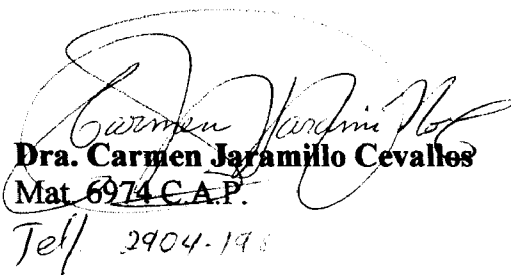 Carmen Jaramillo
Dra. Carmen Jaramillo Cevallos
Mat. 6974 C.A.P.
Telf 2904-19